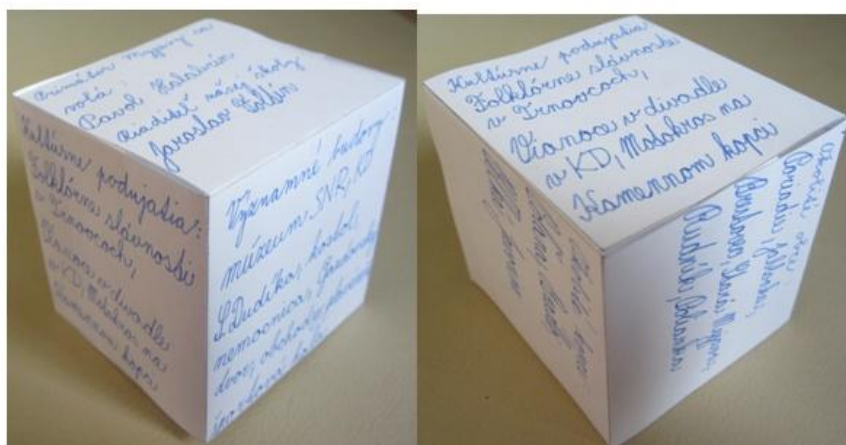 Primátor Myjavy sa
volá:
Pavol Halabrín
Riaditeľ našej školy
Jaroslav
Kultúrne podujatia:
Folklórne slávnosti
v Trnovcoch,
Vianoce v divadle
v KD, Motokros na
Kamennom kopci
Významné budovy:
múzeum SNR, KD
S. Dudíka, kostol,
nemocnica,
dvor, obchodné
Kultúrne podujatia
Folklórne slávnosti
v Trnovcoch,
Vianoce v divadle
v KD, Motokros na
Kamennom kopci
obce:
Poriadie,
Brestovec, Stará Myjava,
Rudník, Polianka